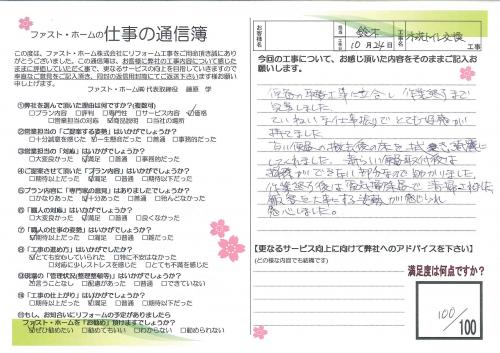 ファスト・ホームの 仕事の通信簿
この度は、ファスト・ホーム株式会社にリフォーム工事をご用命頂き誠にあり
がとうございました。この通信簿は、お客様に弊社の工事内容について感じた
ままに評価していただく事で、更なるサービスの向上を目指していますので
率直なご意見をご記入頂き、同封の返信用封筒にてご返送下さいます様お願い
申し上げます。
ファスト・ホーム㈱ 代表取締役 藤原 学
①弊社を選んで頂いた理由は何ですか?(複数可)
□プラン内容 □評判 □専門性 □サービス内容 □価格
□営業担当の対応 □商品説明 □当社の場所
②営業担当の「ご提案する姿勢」はいかがでしょうか?
□十分誠意を感じた □一生懸命だった □普通 □事務的だった
③営業担当の「対応」はいかがでしょうか?
□大変良かった □満足 □普通 □事務的だった
④ご提案させて頂いた「プラン内容」はいかがでしょうか?
□期待以上だった □満足 □普通 □期待以下だった
⑤プラン内容に「専門家の意見」はありましたでしょうか?
□かなりあった □十分あった □普通 □殆んどなかった
⑥「職人の対応」はいかがでしょうか?
□大変良かった □満足 □普通 □良くなかった
⑦「職人の仕事の姿勢」はいかがでしょうか?
□期待以上だった □満足 □普通 □雑だった
⑧「工事の進め方」はいかがでしたか?
□とても安心していられた □特に不安はなかった
□対応に少しストレスを感じた □とても不満を感じた
⑨現場の「管理状況(整理整頓等)」はいかがでしょうか?
□言うことなし □配慮があった □普通 □できていない
⑩「工事の仕上り」はいかがでしょうか?
□期待以上だった □満足 □普通 □期待以下だった
⑪もし、お知合いにリフォームの予定がありましたら
ファスト・ホームを「お勧め」頂けますでしょうか?
□ぜひ勧めたい □勧めてもいい □わからない □勧められない
お客様名
担当 鈴木
工事日 10月24日
工事名 水洗トイレ交換 工事
今回の工事について、お感じ頂いた内容をそのままご記入お
願いします。
見学しました。
ていねいな仕事振りでとても好感が
持てました
してくれました。新らしい便器取付後は
掃除ができない部分なので助かりました。
感心しました。
【更なるサービス向上に向けて弊社へのアドバイスを下さい】
(どの様な内容でも結構です)
満足度は何点ですか?
100/100